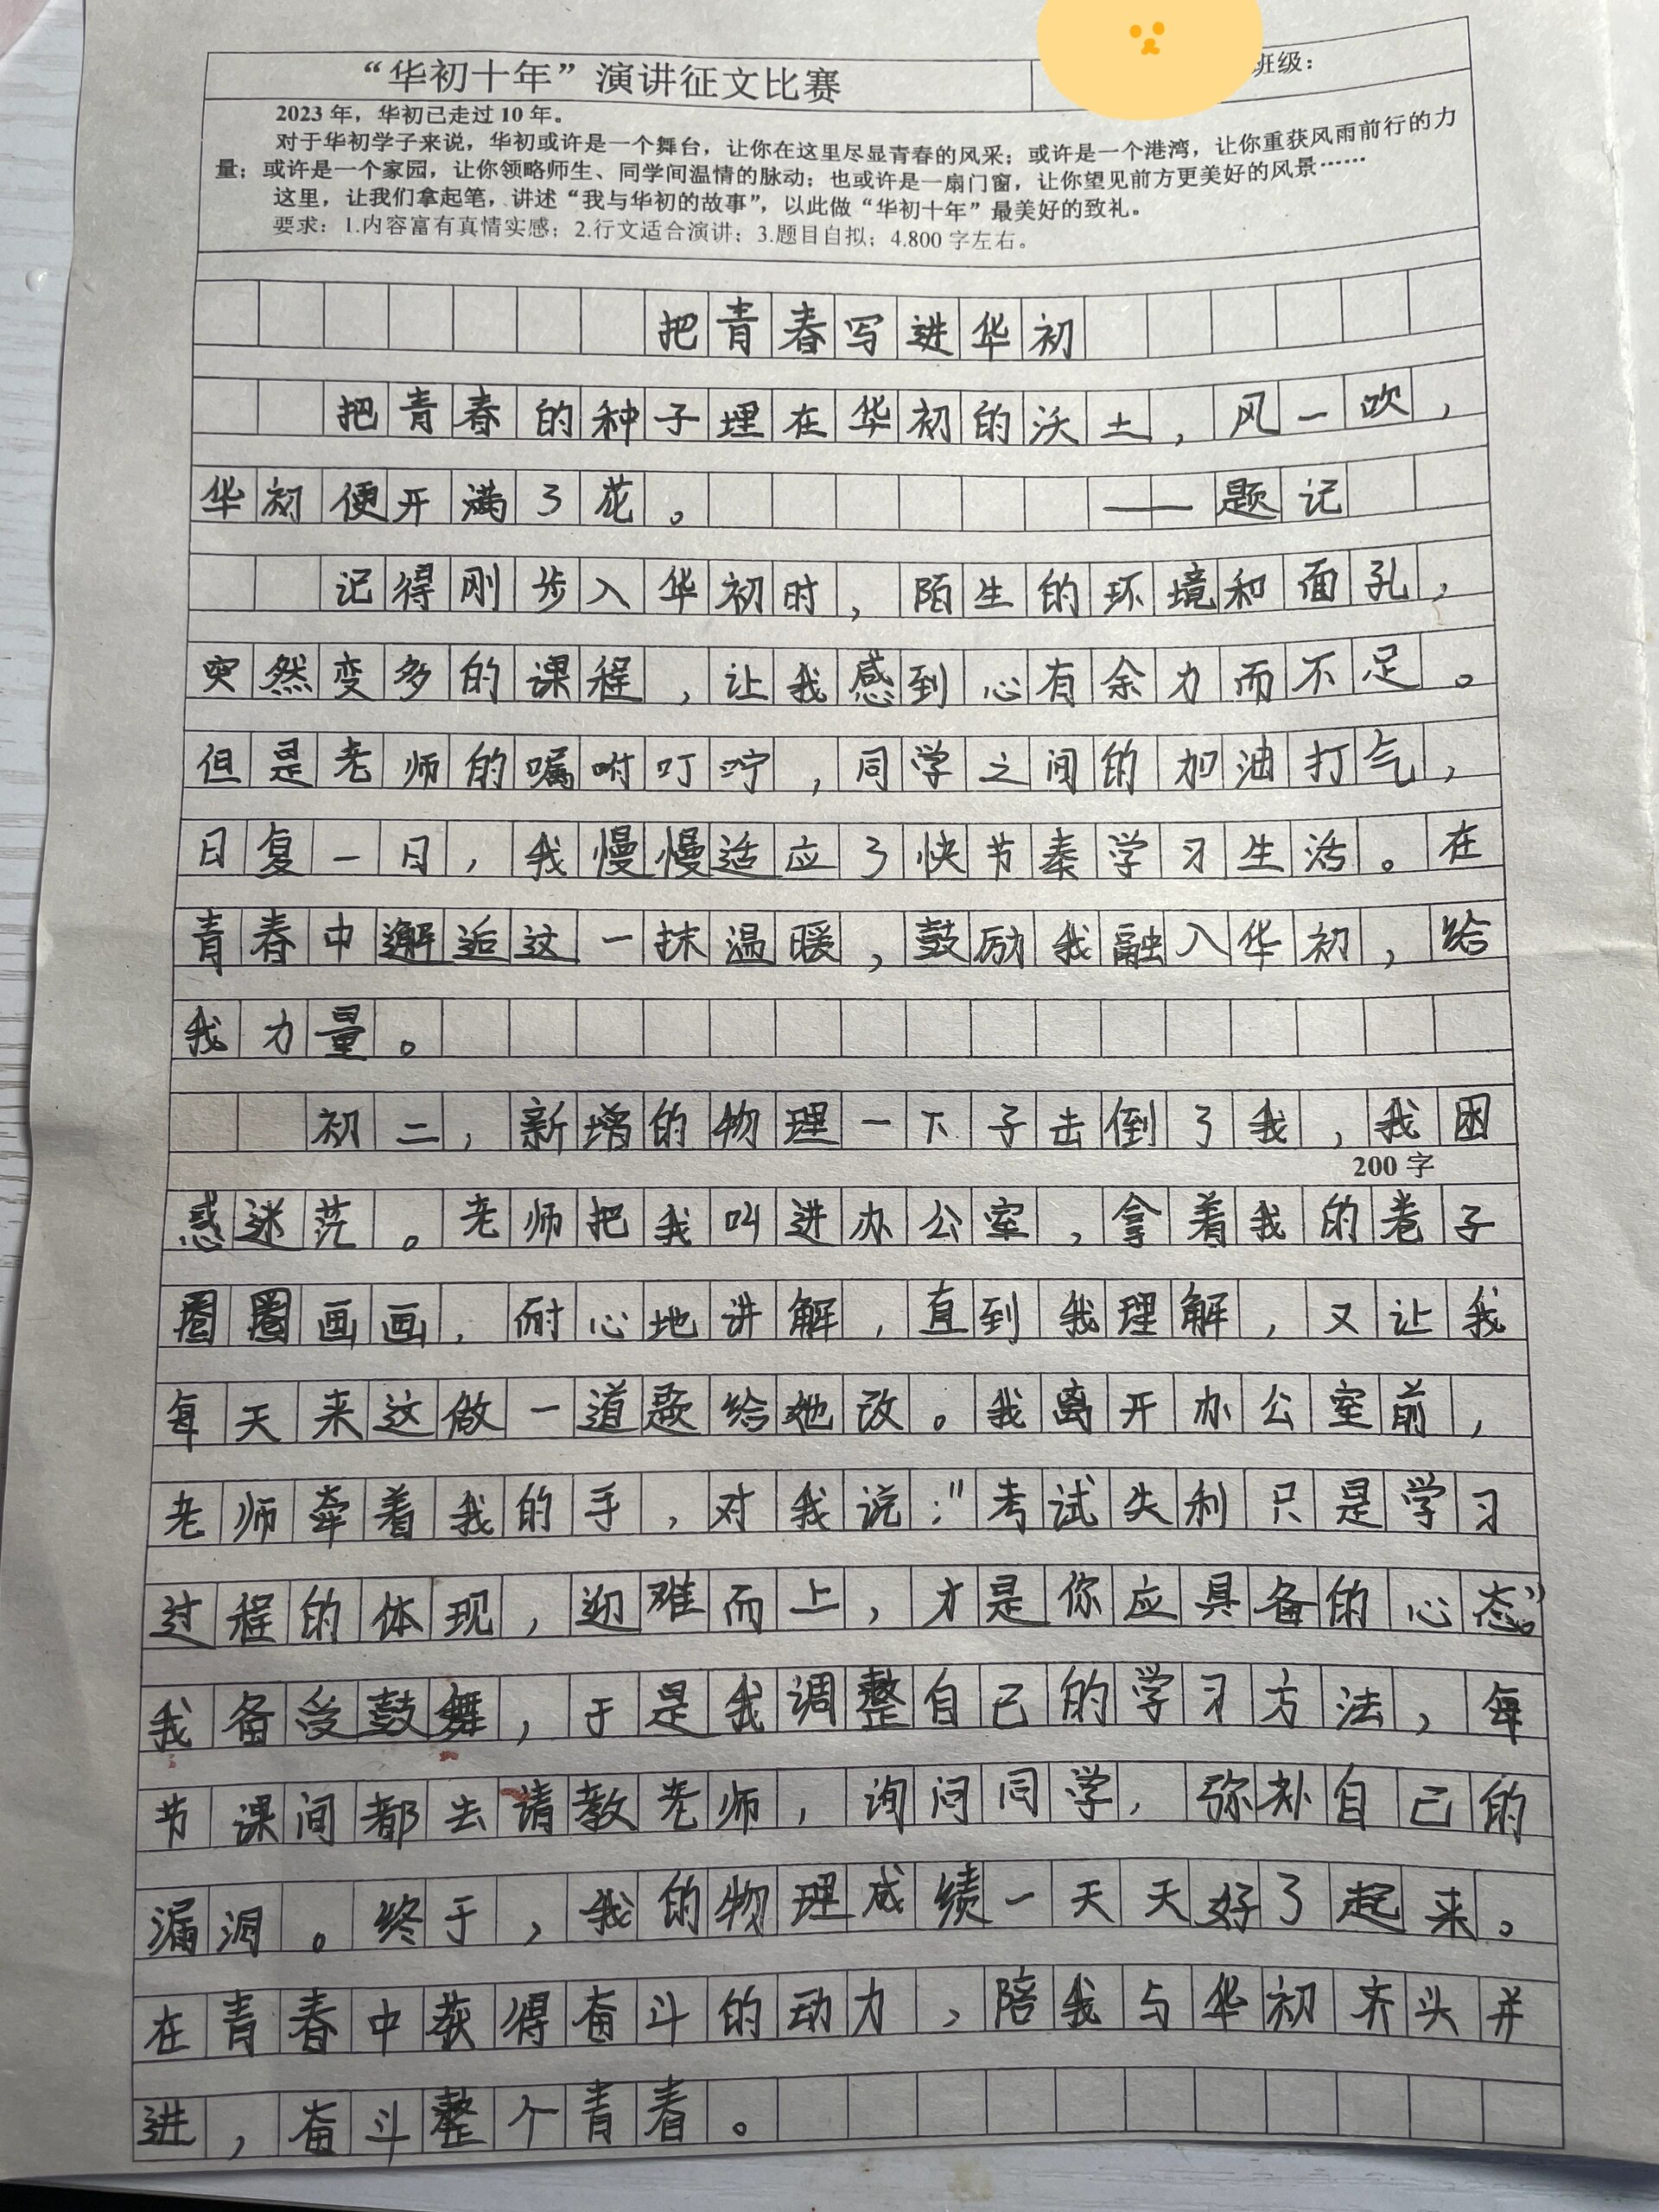 “华初十年”演讲征文比赛
班级：
2023 年，华初已走过 10 年。
对于华初学子来说，华初或许是一个舞台，让你在这里尽显青春的风采；或许是一个港湾，让你重获风雨前行的力
量；或许是一个家园，让你领略师生、同学间温情的脉动；也或许是一扇门窗，让你望见前方更美好的风景……
这里，让我们拿起笔，讲述“我与华初的故事”，以此做“华初十年”最美好的致礼。
要求：1.内容富有真情实感；2.行文适合演讲；3.题目自拟；4.800 字左右。
把青春写进华初
把青春的种子埋在华初的沃土，风一吹，
华初便开满了花。——题记
记得刚步入华初时，陌生的环境和面孔，
突然变多的课程，让我感到心有余力而不足。
但是老师的嘱咐叮咛，同学之间的加油打气，
日复一日，我慢慢适应了快节奏学习生活。在
青春中邂逅这一抹温暖，鼓励我融入华初，给
我力量。
初二，新增的物理一下子击倒了我，我困
200 字
惑迷茫。老师把我叫进办公室，拿着我的卷子
圈圈画画，耐心地讲解，直到我理解，又让我
每天来这做一道题给她改。我离开办公室前，
老师牵着我的手，对我说："考试失利只是学习
过程的体现，迎难而上，才是你应具备的心态。”
我备受鼓舞，于是我调整自己的学习方法，每
节课间都去请教老师，询问同学，弥补自己的
漏洞。终于，我的物理成绩一天天好了起来。
在青春中获得奋斗的动力，陪我与华初齐头并
进，奋斗整个青春。